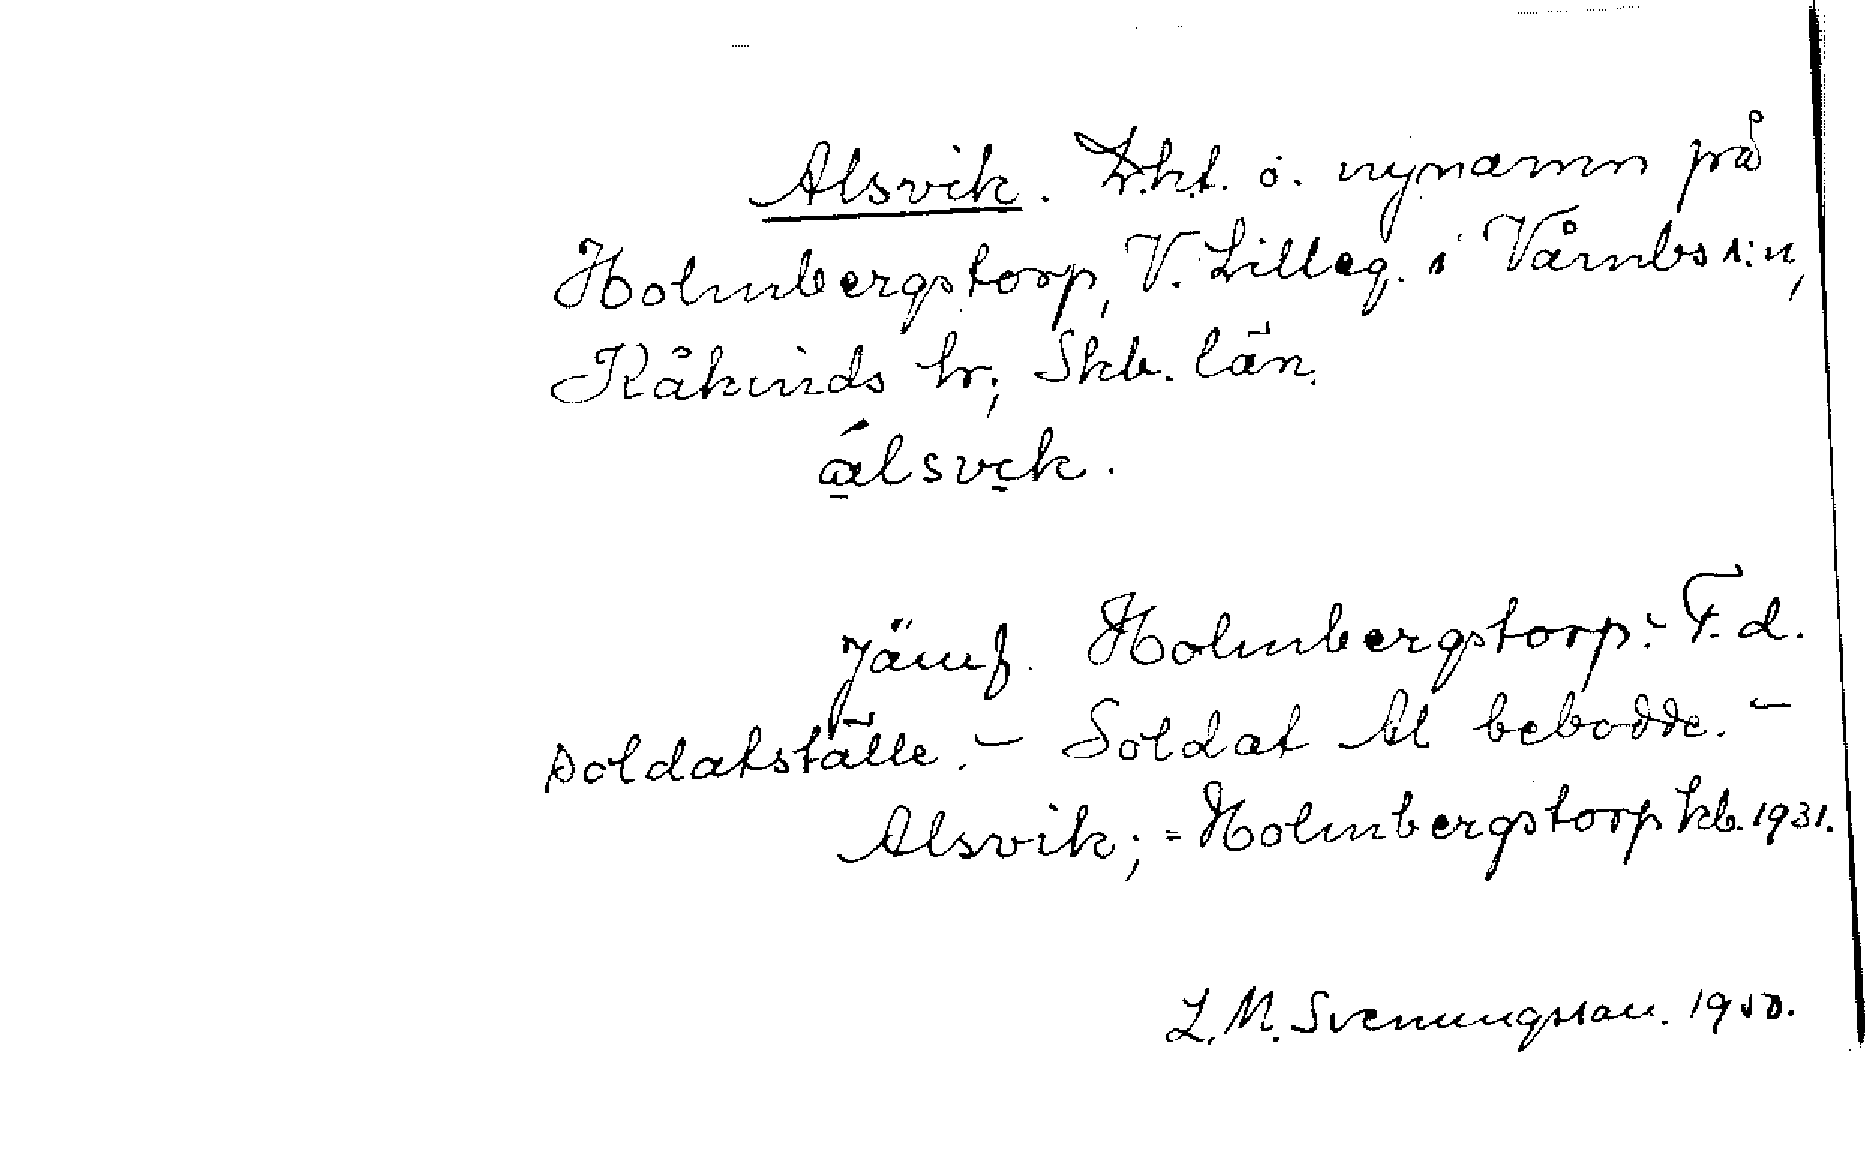 Alsvik. Lht. o. nynamn på
Holmbergstorp, V. Lilleg. i Våmbs s:n,
Kåkinds hr; Skb. län.
álsvik.
Jämf. Holmbergstorp. – F. d.
soldatställe. – Soldat Al bebodde. –
Alsvik; = Holmbergstorp kb. 1931.
L. M. Svenungsson. 1950.